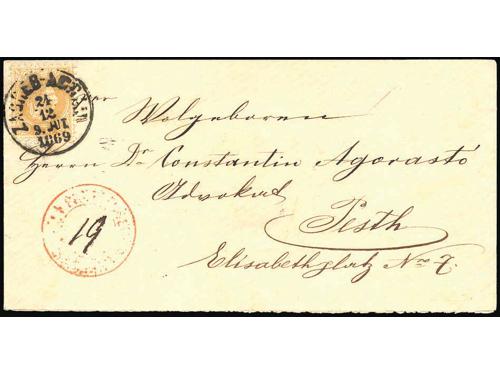 ZAGREB-AGRAM
24
12
S. JUT
1869
Wolgeboren
Herrn Dr Constantin Agorastó
Advokat
Pesth
19
Elisabethplatz No 7.